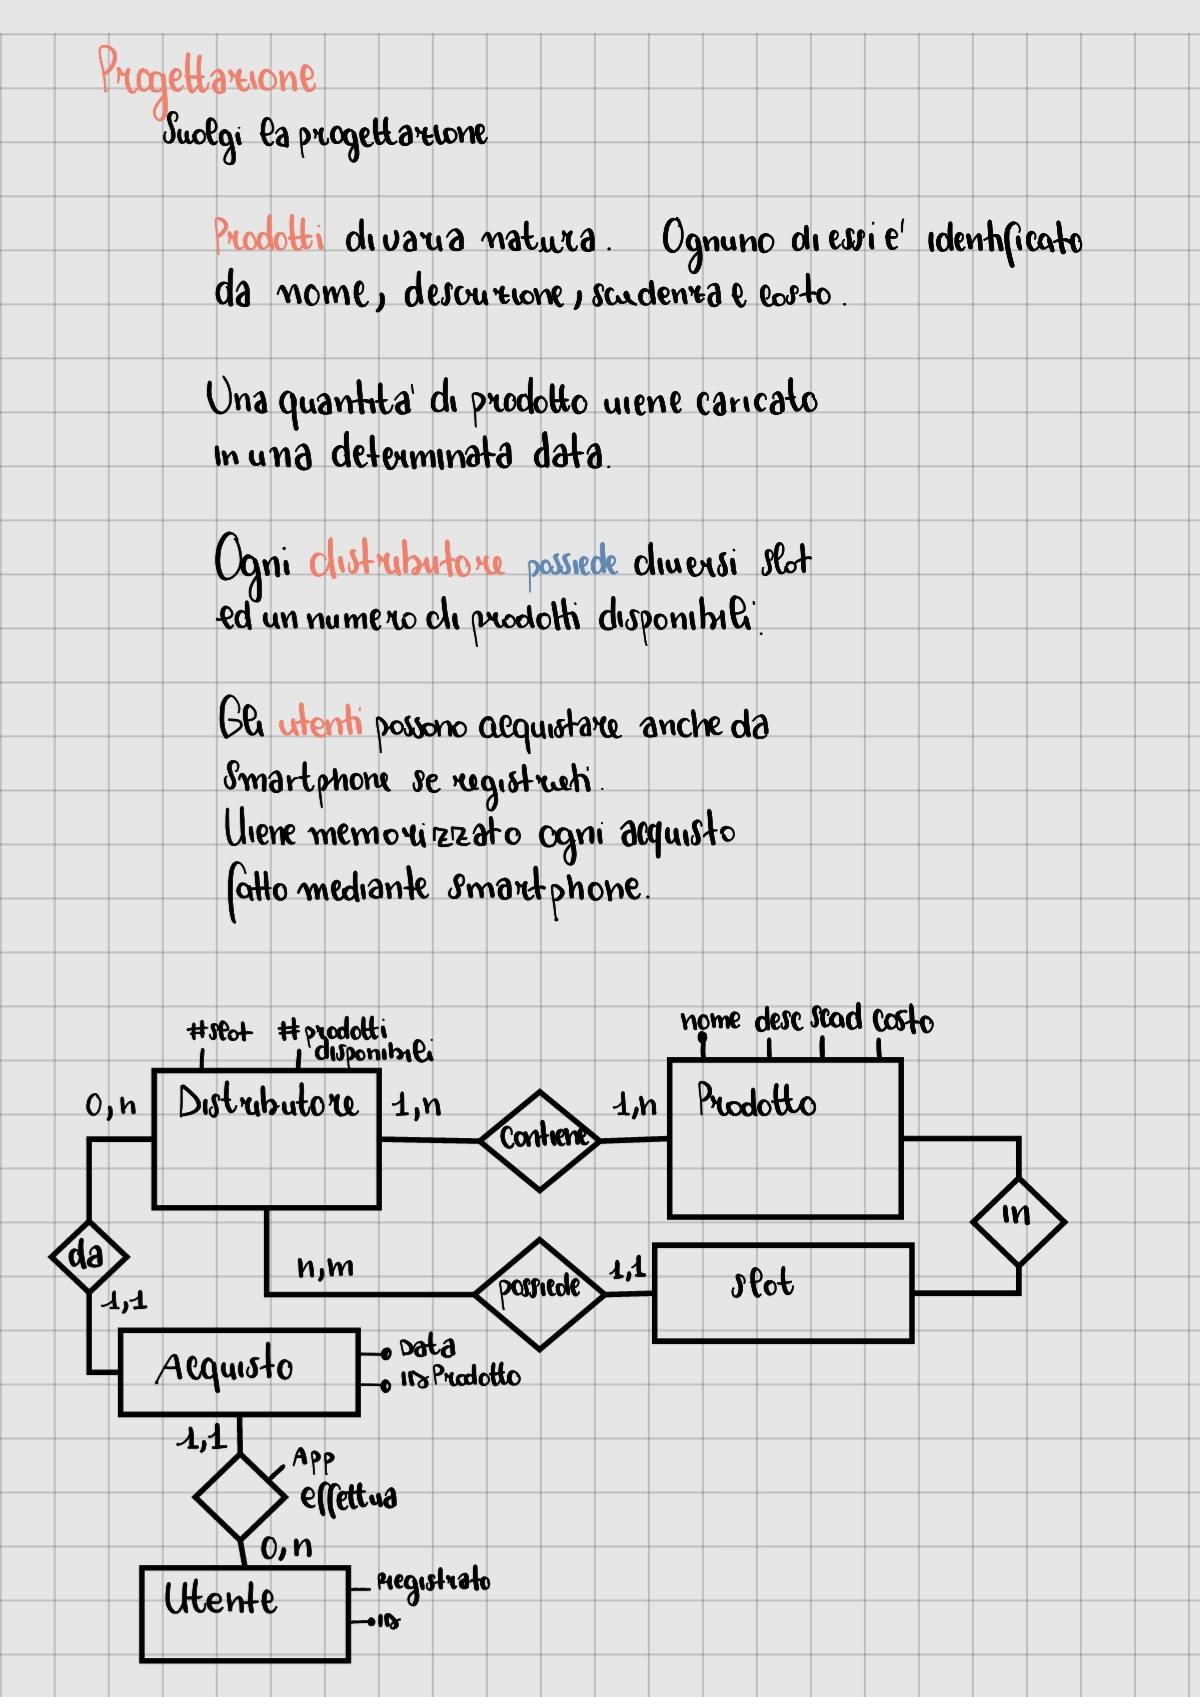 Progettazione
Svolgi la progettazione
Prodotti di varia natura. Ognuno di essi e' identificato
da nome, descrizione, scadenza e costo.
Una quantita' di prodotto viene caricato
in una determinata data.
Ogni distributore possiede diversi slot
ed un numero di prodotti disponibili.
Gli utenti possono acquistare anche da
smartphone se registrati.
Viene memorizzato ogni acquisto
fatto mediante smartphone.
nome desc scad costo
#slot #prodotti
disponibili
0,n Distributore 1,n contiene 1,n Prodotto
in
da n,m possiede 1,1 slot
1,1
Acquisto Data
ID Prodotto
1,1
App
effettua
0,n
Utente Registrato
ID